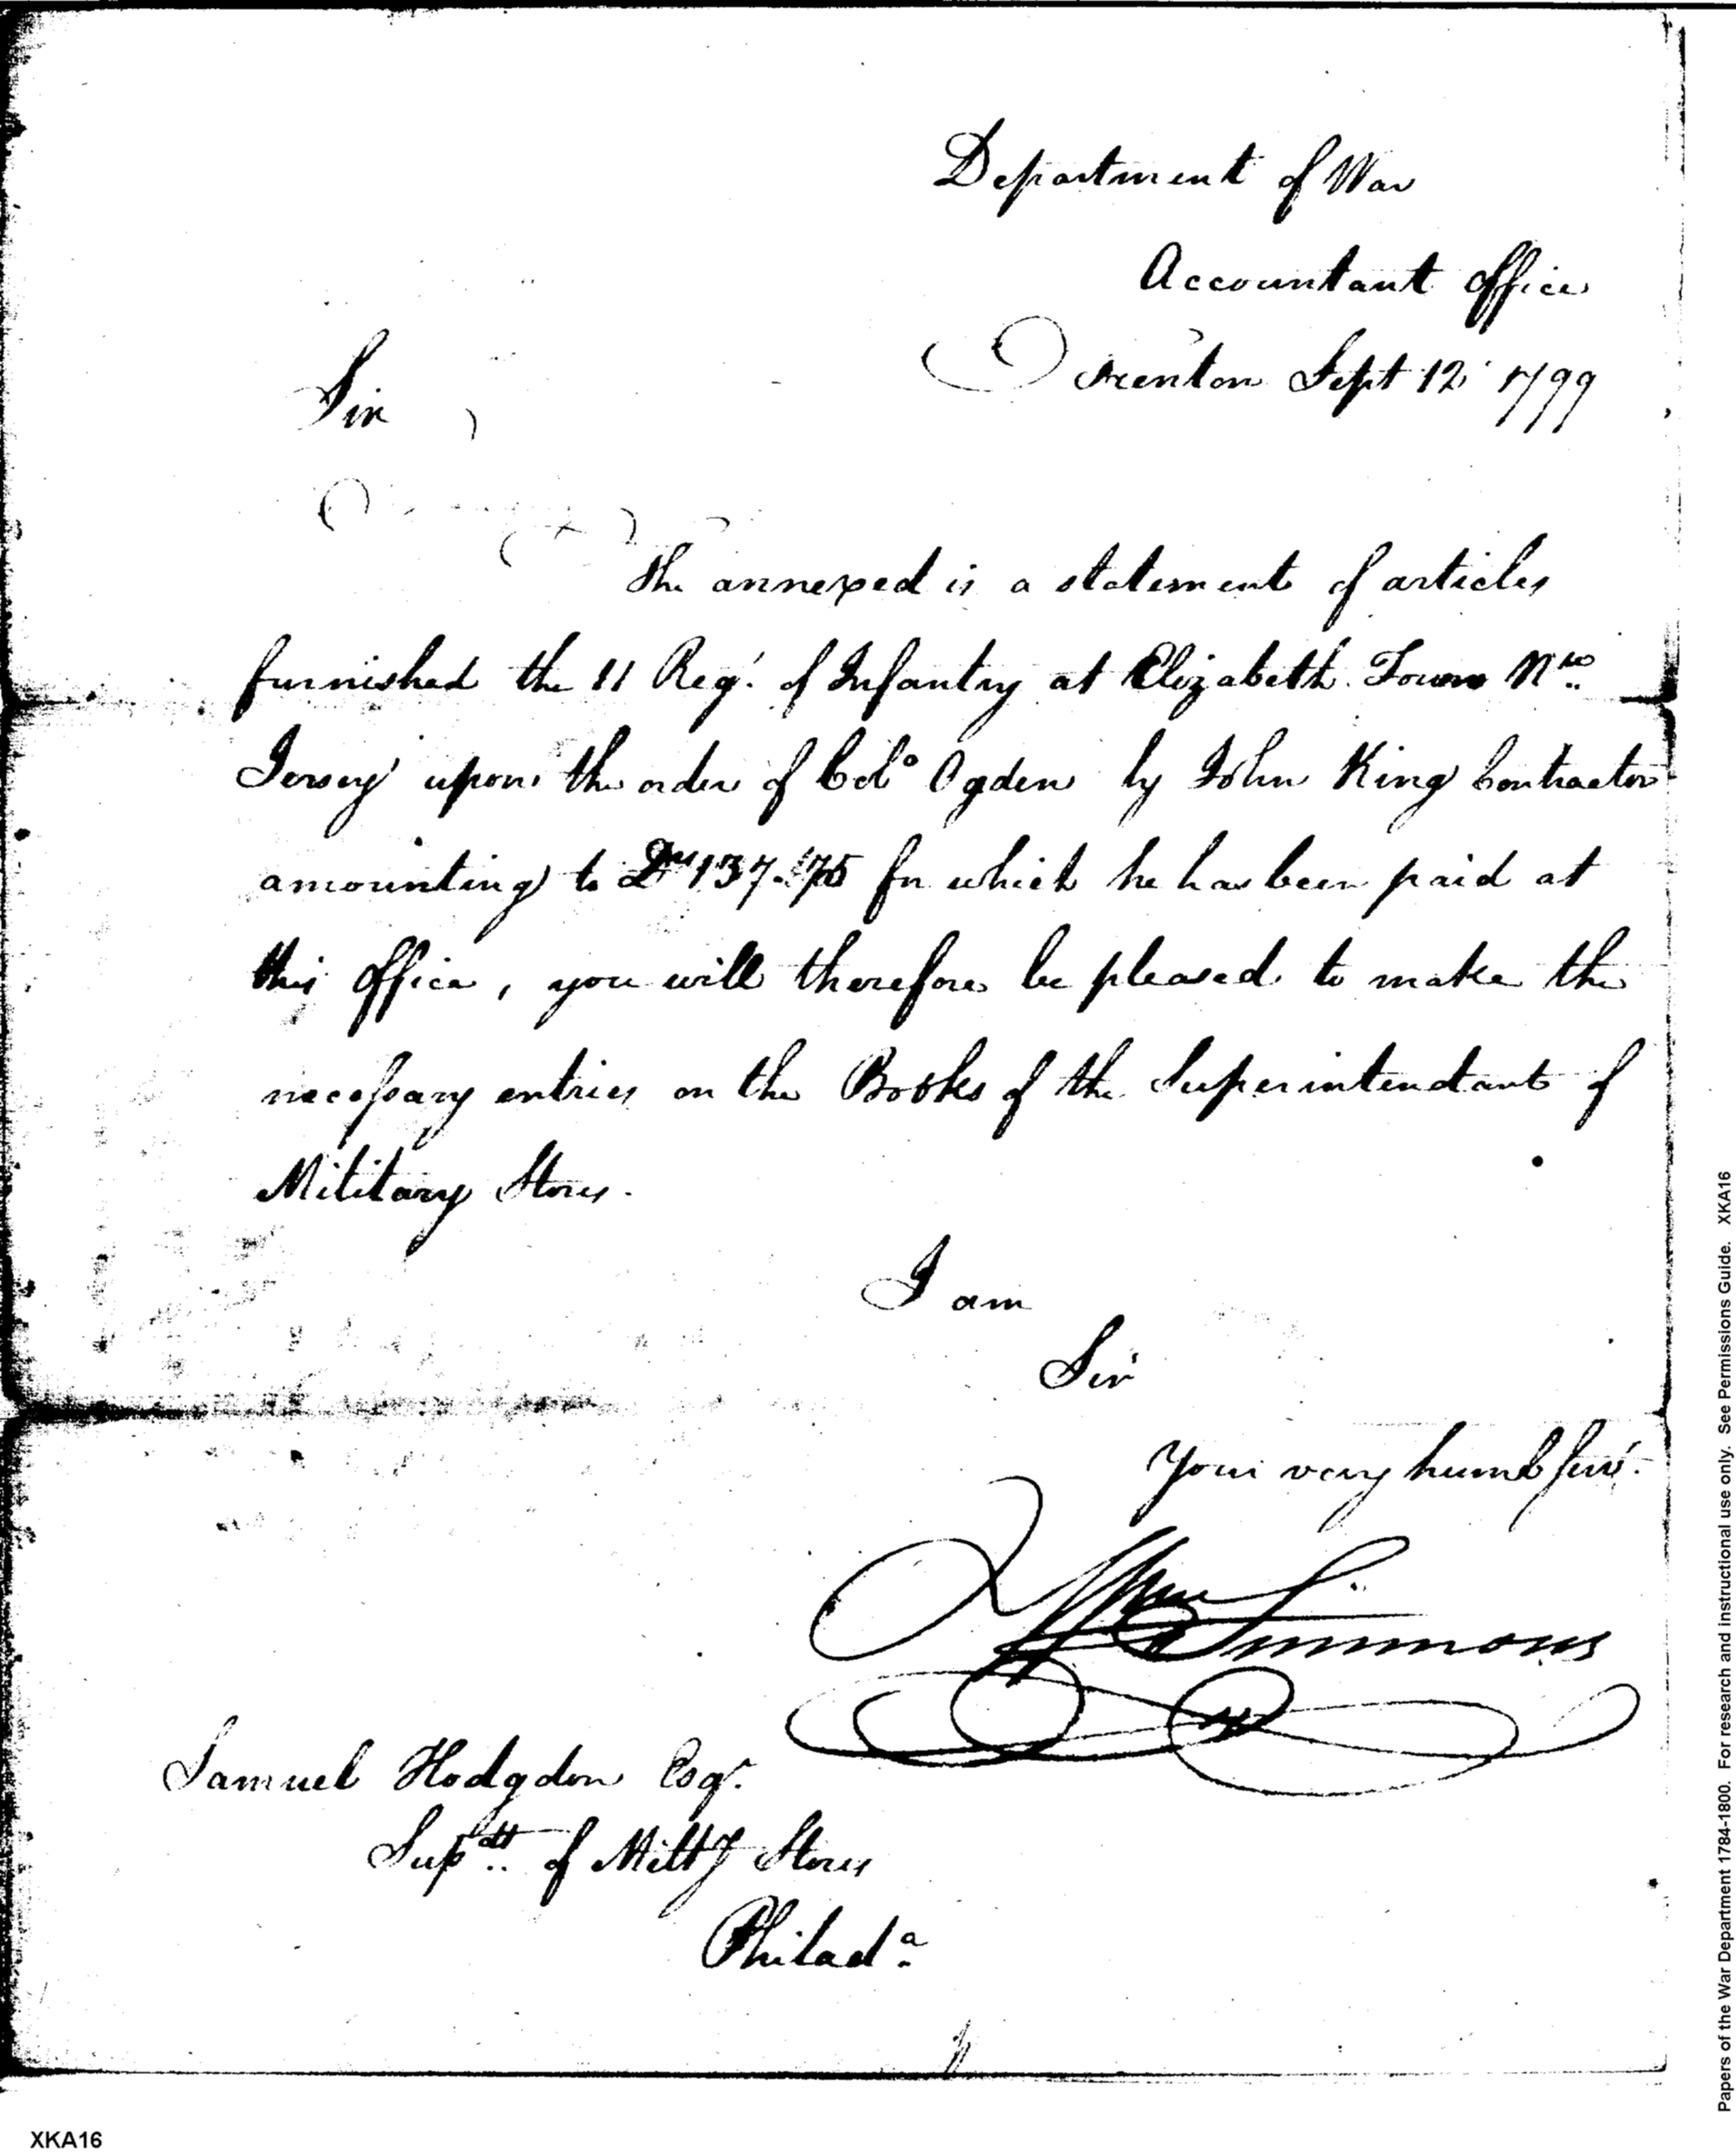 Department of War
Accountant Office
Trenton Sept 12 1799
Sir
The annexed is a statement of articles
furnished the 11 Reg.t of Infantry at Elizabeth Town N.w
Jersey upon the order of Col.o Ogden by John King Contractor
amounting to Drs 137.75 for which he has been paid at
this office, you will therefore be pleased to make the
necessary entries on the Books of the Superintendant of
Military Stores.
I am
Sir
Your very humb serv.t
Wm Simmons
Samuel Hodgdon Esqr.
Sup.dt of Milty Stores
Philad.a
XKA16
Papers of the War Department 1784-1800. For research and instructional use only. See Permissions Guide. XKA16